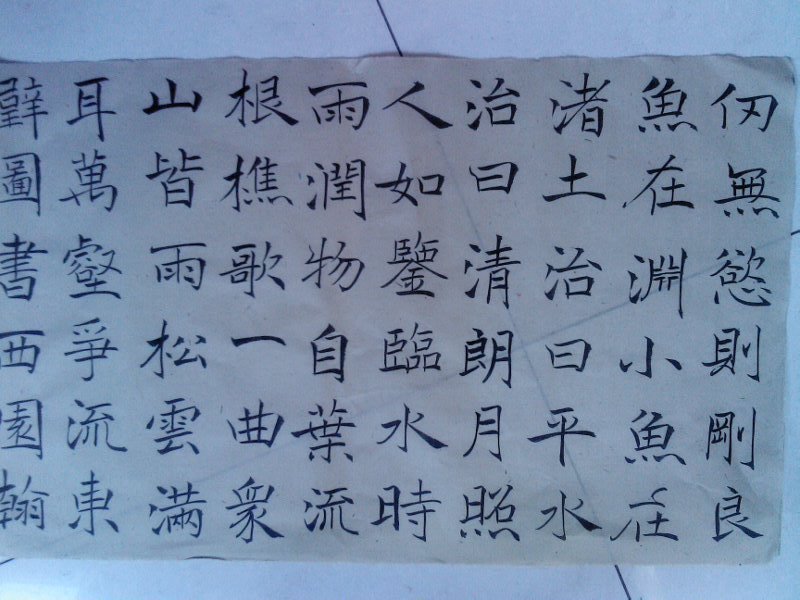 仞無慾則剛良
魚在淵小魚在
渚土治曰平水
治曰清朗月照
人如鑒臨水時
雨潤物自葉流
根樵歌一曲衆
山皆雨松雲滿
耳萬壑爭流東
壁圖書西園翰